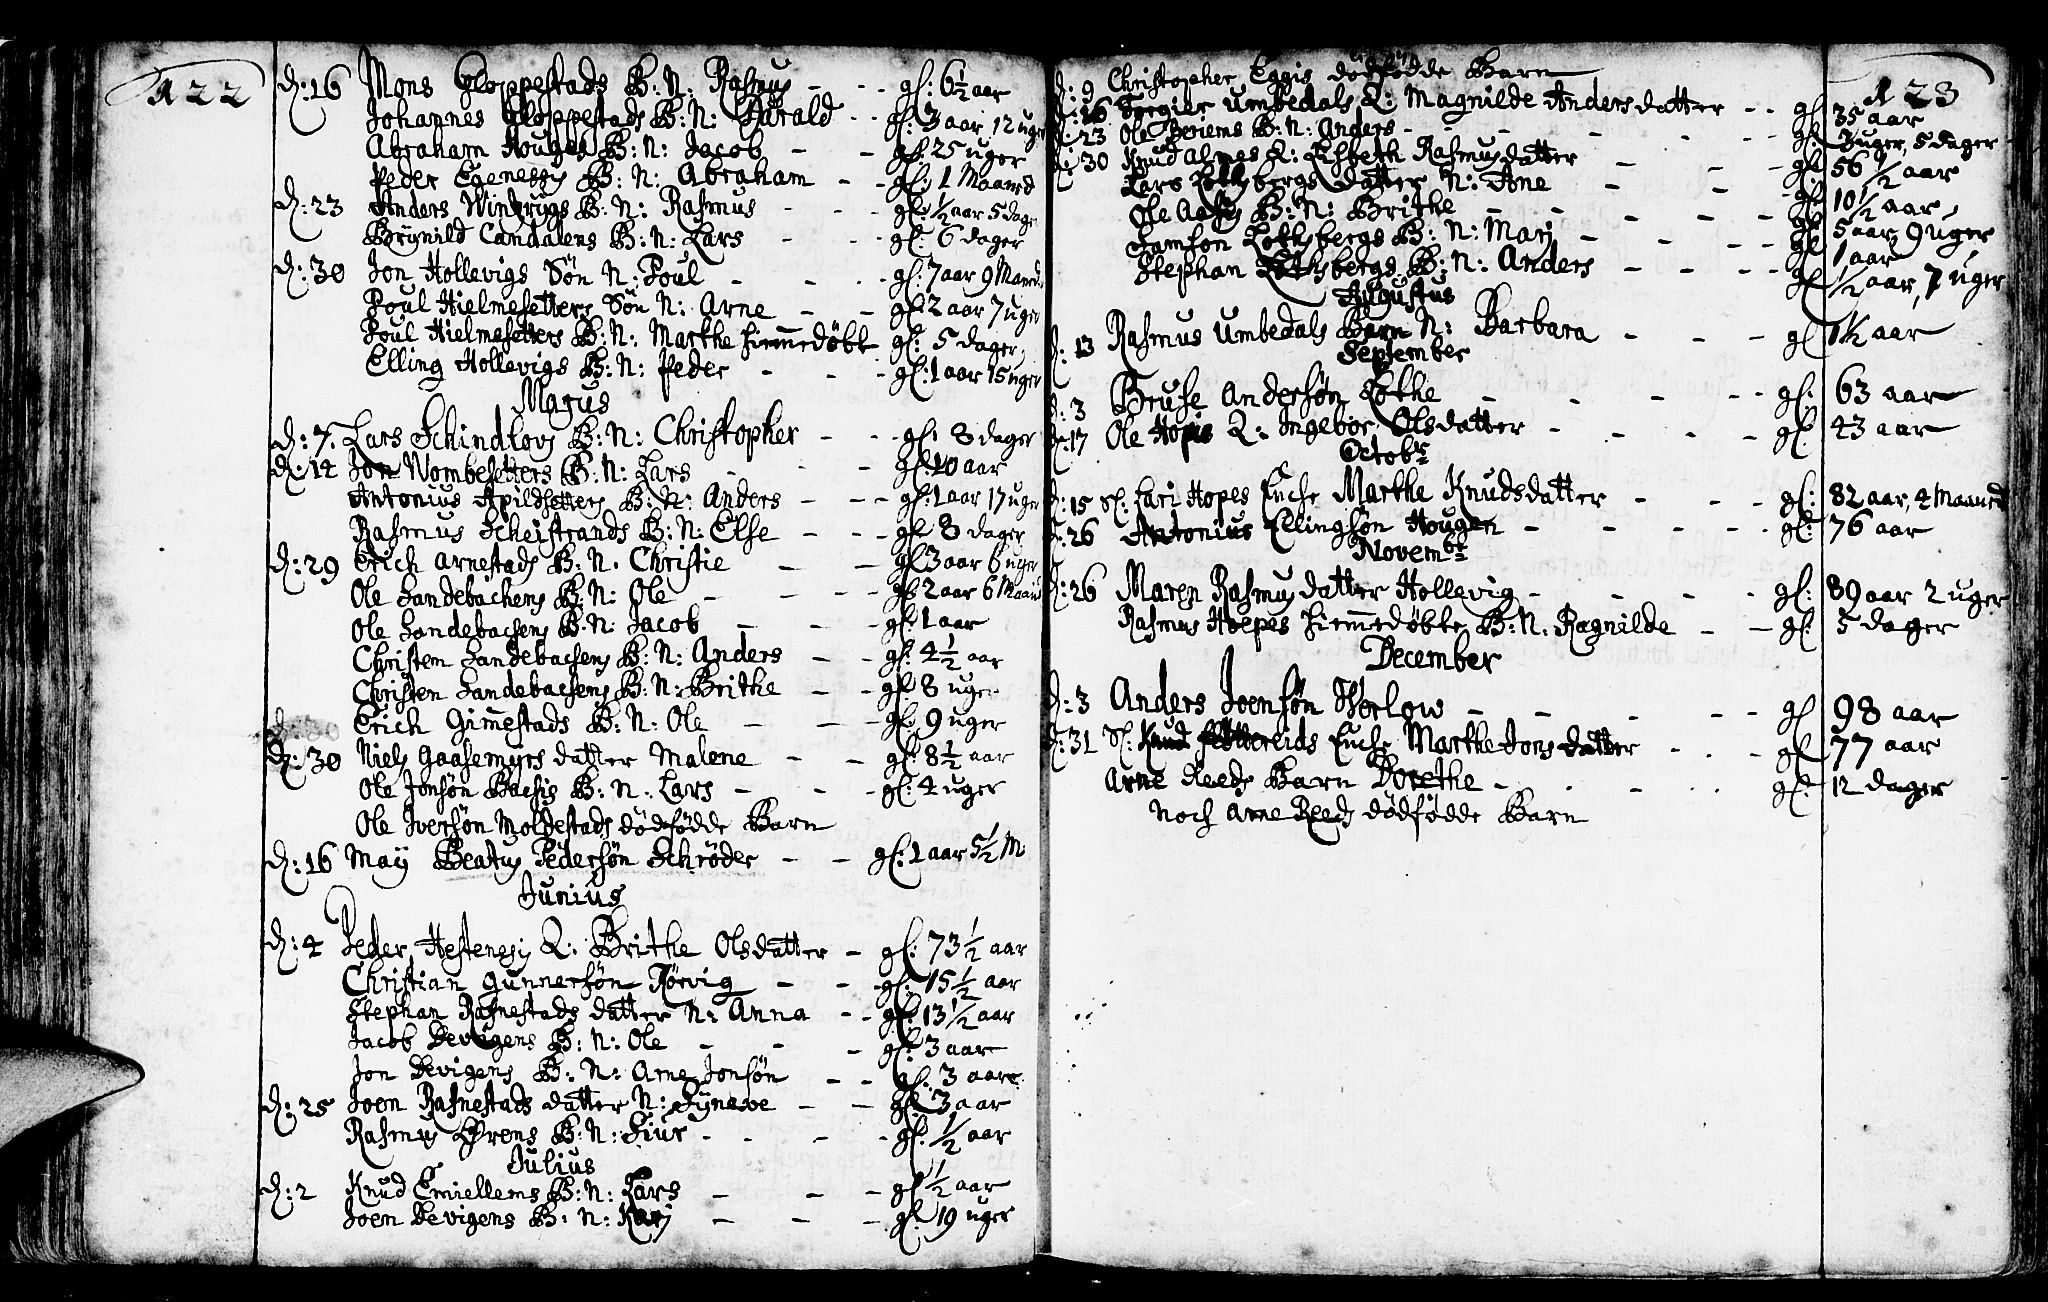 122
d: 16 Mons Gloppestads B: N: Rasmus - - - gl: 6½ aar
Johannes Gloppestads B: N: Harald - - gl: 3 aar 12 uger
Abraham Houges B: N: Jacob - - gl: 25 uger
Peder Egenessis B: N: Abraham - - gl: 1 Maaned
d: 23 Anders Winkrygs B: N: Rasmus - - - gl: ½ aar 5 dage
Brynild Candalens B: N: Lars - - gl: 6 dager
d: 30 Jon Hollevigs Søn N: Poul - - - gl: 7 aar 9 Maand
Poul Hielmesetters Søn N: Arne - - gl: 2 aar 7 uger
Poul Hielmesetters B: N: Marthe Hiemedøbt gl: 5 dager
Elling Hollevigs B: N: Peder - - - gl: 1 aar 15 uger
Majus
d: 7. Lars Schindlovs B: N: Christopher - - - gl: 8 dager
d: 14 Jon Wombesetters B: N: Lars - - - gl: 10 aar
Antonius Apildsetters B: N: Anders - - - gl: 1 aar 17 uger
Rasmus Scheistrands B: N: Else - - - gl 8 dager
d: 29 Erich Arnestads B: N. Christie - - gl 3 aar 6 uger
Ole Sandebachens B: N: Ole - - - - gl 2 aar 6 Maan
Ole Sandebachens B: N: Jacob - - - gl: 1 aar
Christen Sandebachens B: N: Anders - - gl: 4½ aar
Christen Sandebachens B: N: Brithe - - gl 8 uger
Erich Gimestads B: N: Ole - - - gl: 9 uger
d: 30 Niels Gaasemyrs datter Malene - - gl: 8½ aar
Ole Jonsøn Bachis B: N: Lars - - - gl: 4 uger
Ole Iversøn Moldestads dödfödde Barn
d: 16 Maÿ Beatus Pedersøn Schrøder - - gl: 1 aar 5½ M
Junius
d: 4 Peder Hestenesis Q: Brithe Olsdatter - gl: 73½ aar
Christian Gunnersøn Rørvig - - - gl: 15½ aar
Stephan Rafnestads datter N: Anna - - gl: 13½ aar
Jacob Devigens B: N: Ole - - - gl: 3 aar
Jon Devigens B: N: Arne Jonsøn - - gl: 3 aar
d: 25 Joen Rafnestads datter N: Syneve - - gl 3 aar
Rasmus Lyrens B: N: Siur - - - - gl: ½ aar
Julius
d: 2 Knud Emiellems B: N: Lars - - - gl ½ aar
Joen Devigens B: N: Karj - - - gl: 19 uger
123
d: 9 Christopher Eggis dödfödde Barn
d: 16 Umbedals Q: Magnilde Andersdatter - - gl 35 aar
d: 23 Ole B: N: Anders - - - - gl: 3 uger, 5 dager
d: 30 Knud Almes Q: Lisbeth Rasmusdatter - - gl 56½ aar
Lars Lothsbergs datter N: Ane - - - gl: 10½ aar
Ole Aasis B: N: Brithe - - - - gl 5 aar 9 uger
Samson Lothsbergs B: N: Marj - - - gl 1 aar
Stephan Lothsbergs B: N: Anders - - - - gl ½ aar, 7 uger
Augustus
d: 13 Rasmus Umbedals Barn N: Barbara - - - gl 1½ aar
September
d: 3 Bruse Andersøn Lothe - - - - gl: 63 aar
d: 17 Ole Hopis Q: Ingebor Olsdatter - - - - gl: 43 aar
Octobr
d: 15 Sl: Lari Hopes Enche Marthe Knudsdatter - - - gl: 82 aar, 4 Maaned
d: 26 Antonius Ellingsøn Hougen - - - - gl: 76 aar
Novembr
d: 26 Maren Rasmusdatter Hollevig - - - - gl: 89 aar 2 uger
Rasmus Hoepes Hiemedøbte B: N. Ragnilde - - gl: 5 dager
December
d: 3 Anders Joensøn Werlow - - - - - gl 98 aar
d: 31 Sl: Knud Enche Marthe Jons datter - - - gl 77 aar
Arne Reeds Barn Dorethe - - - - - gl: 12 dager
Noch Arne Reeds dödfödde Barn